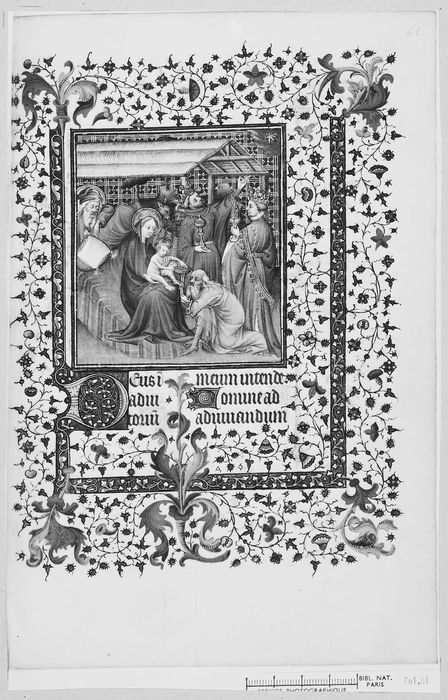 61
DEus i
adiu
toriū
meum intende
Domine ad
adiuuandum
BIBL. NAT.
PARIS
Fol. 61
SERVICE PHOTOGRAPHIQUE